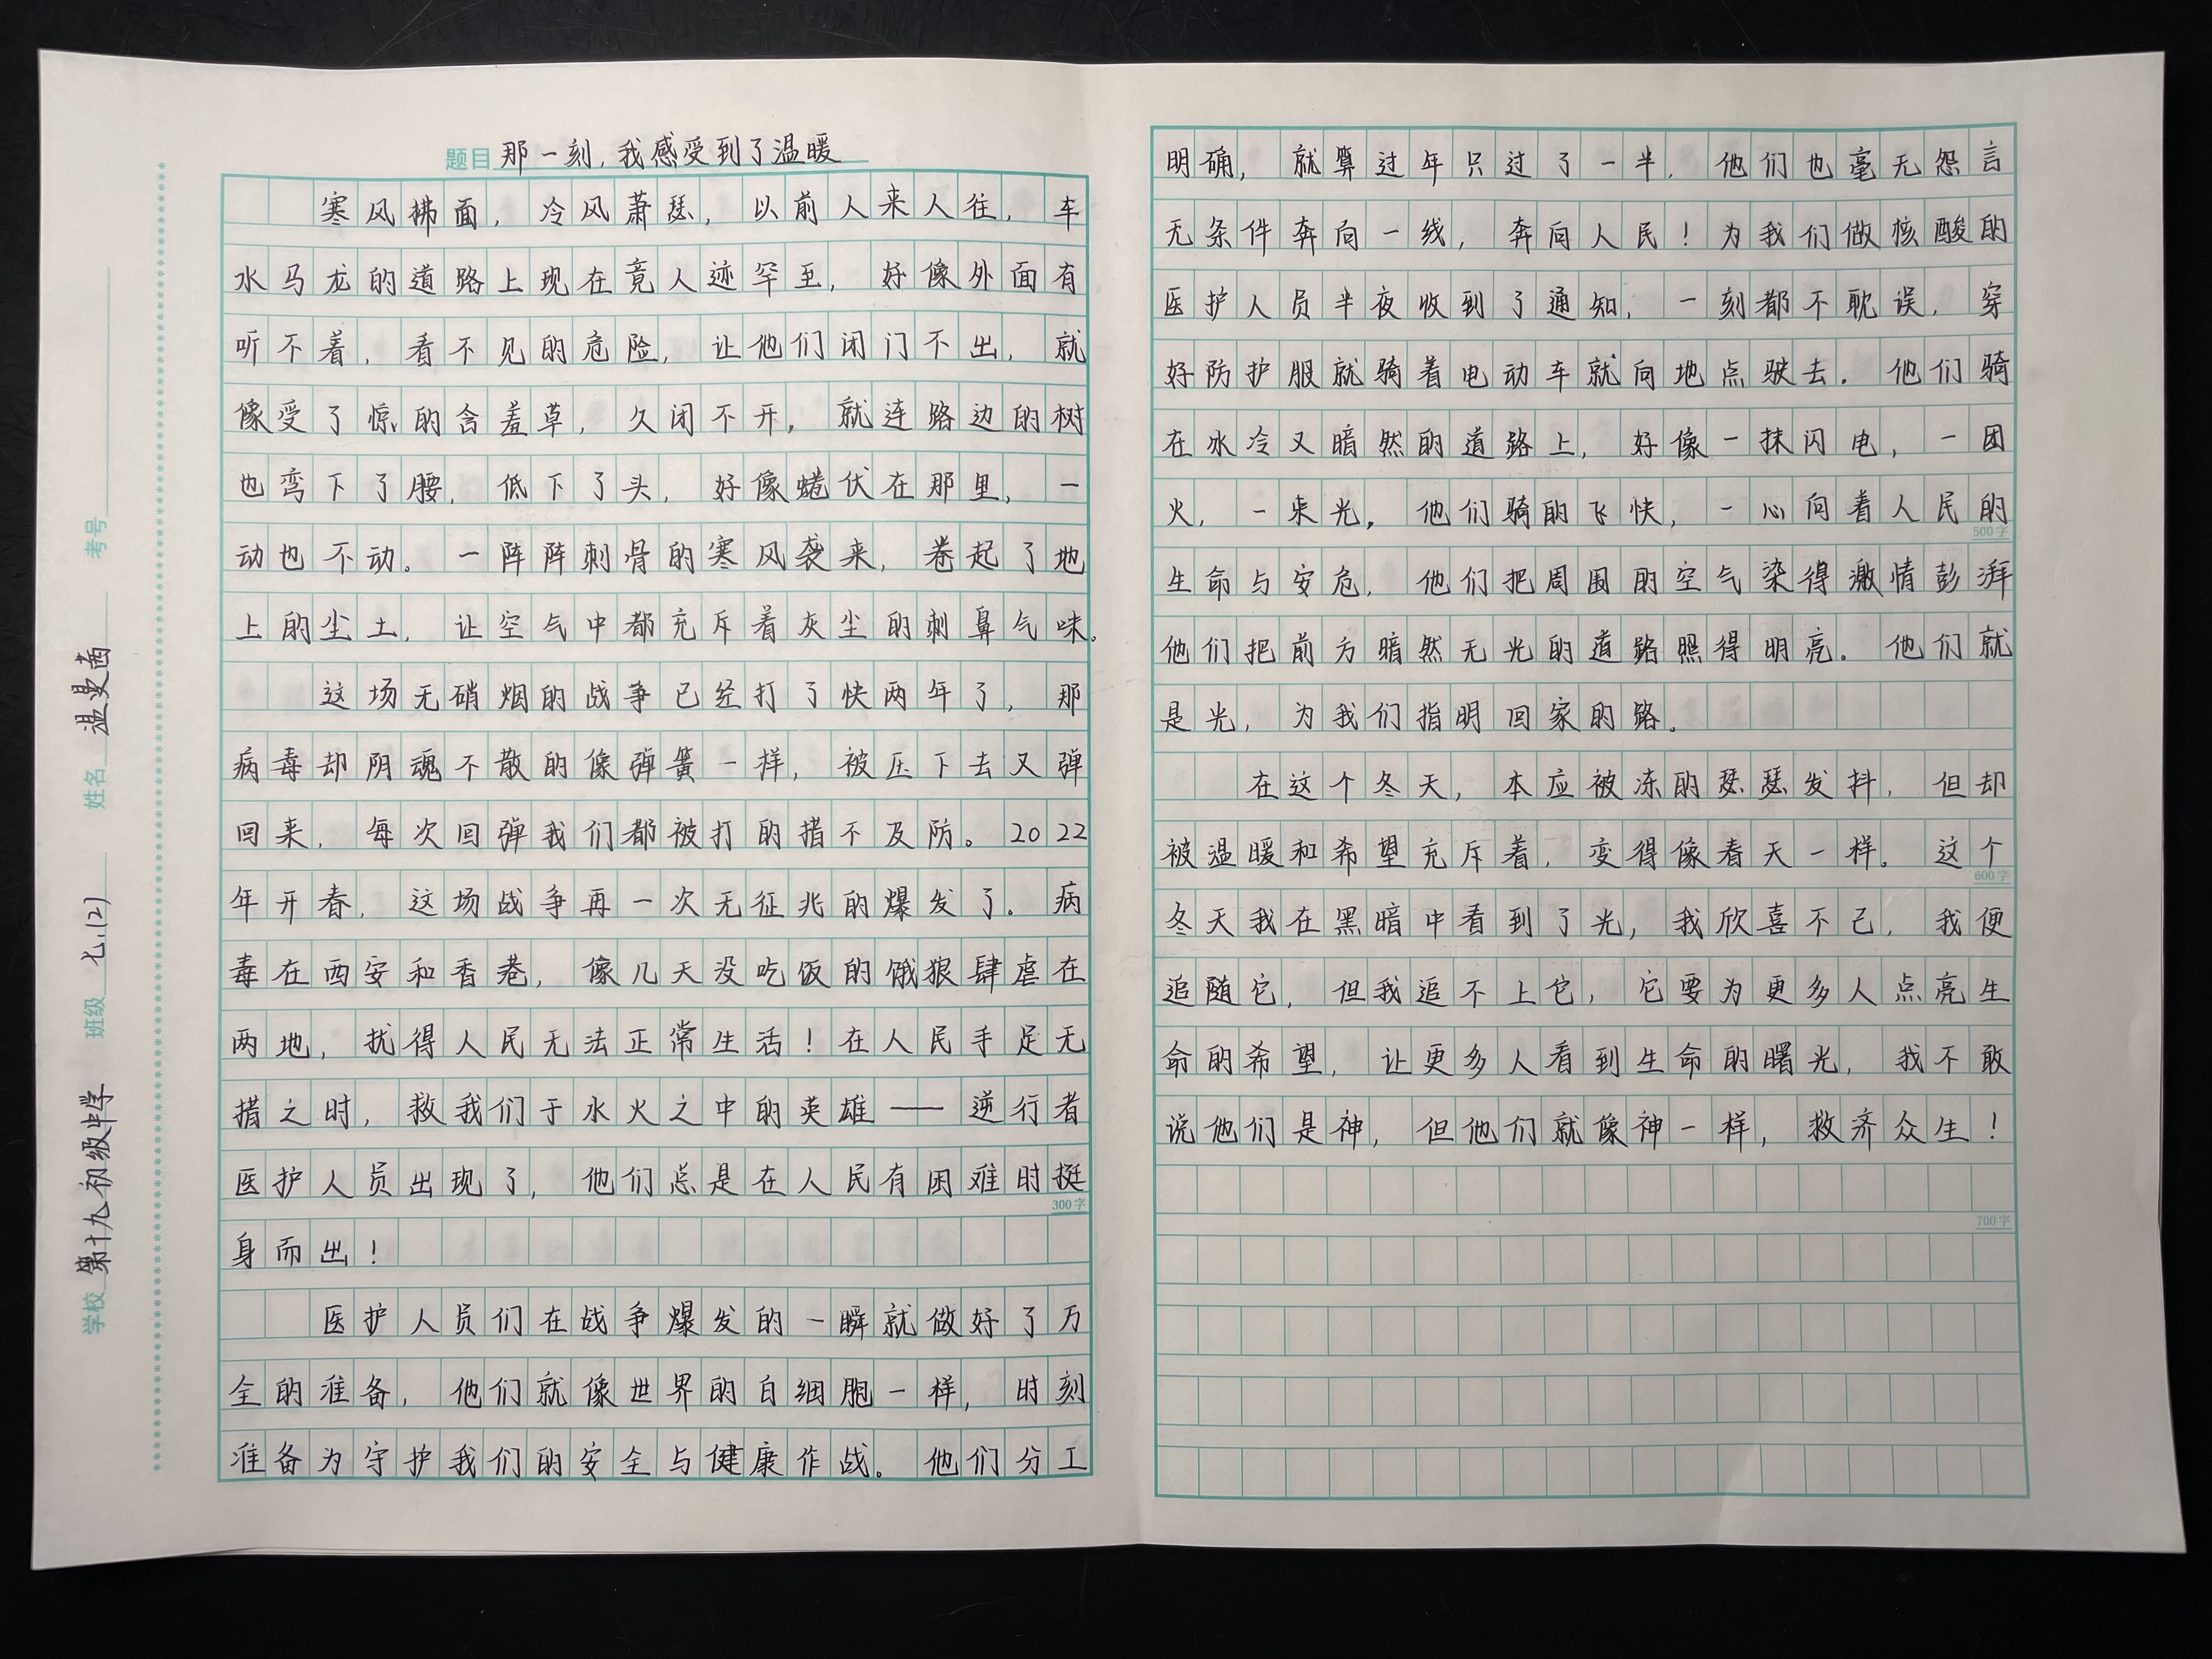 题目 那一刻,我感受到了温暖
寒风拂面,冷风萧瑟,以前人来人往,车
水马龙的道路上现在竟人迹罕至,好像外面有
听不着,看不见的危险,让他们闭门不出,就
像受了惊的含羞草,久闭不开,就连路边的树
也弯下了腰,低下了头,好像蜷伏在那里,一
动也不动。一阵阵刺骨的寒风袭来,卷起了地
上的尘土,让空气中都充斥着灰尘的刺鼻气味。
这场无硝烟的战争已经打了快两年了,那
病毒却阴魂不散的像弹簧一样,被压下去又弹
回来,每次回弹我们都被打的措不及防。2022
年开春,这场战争再一次无征兆的爆发了。病
毒在西安和香港,像几天没吃饭的饿狼肆虐在
两地,扰得人民无法正常生活!在人民手足无
措之时,救我们于水火之中的英雄——逆行者
医护人员出现了,他们总是在人民有困难时挺
300字
身而出!
医护人员们在战争爆发的一瞬就做好了万
全的准备,他们就像世界的白细胞一样,时刻
准备为守护我们的安全与健康作战。他们分工
明确,就算过年只过了一半,他们也毫无怨言
无条件奔向一线,奔向人民!为我们做核酸的
医护人员半夜收到了通知,一刻都不耽误,穿
好防护服就骑着电动车就向地点驶去。他们骑
在冰冷又暗然的道路上,好像一抹闪电,一团
火,一束光,他们骑的飞快,一心向着人民的
500字
生命与安危,他们把周围的空气染得激情彭湃
他们把前方暗然无光的道路照得明亮。他们就
是光,为我们指明回家的路。
在这个冬天,本应被冻的瑟瑟发抖,但却
被温暖和希望充斥着,变得像春天一样。这个
600字
冬天我在黑暗中看到了光,我欣喜不已,我便
追随它,但我追不上它,它要为更多人点亮生
命的希望,让更多人看到生命的曙光,我不敢
说他们是神,但他们就像神一样,救济众生!
700字
学校 第十九初级中学 班级 七.(2) 姓名 温曼茜 考号